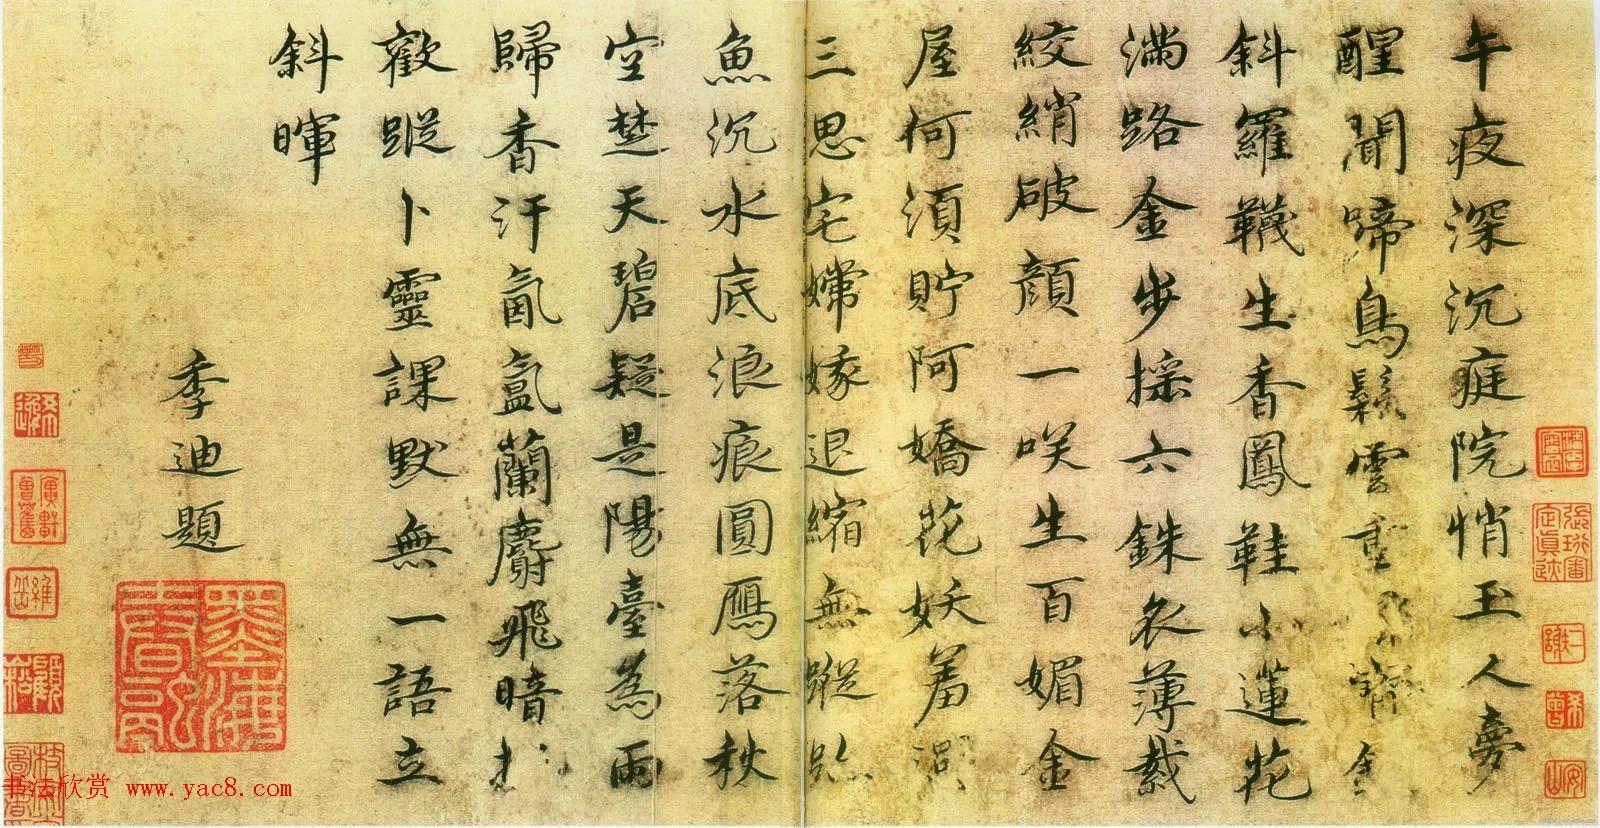 午夜深沉庭院悄玉人夢
醒聞啼鳥鬆雲重金
斜羅韈生香鳳鞋小蓮花
滿路金步搖六銖衣薄裁
絞綃破顔一咲生百媚金
屋何須貯阿嬌花妖羞
三思宅嫦娥退縮無蹤跡
魚沉水底浪痕圓鴈落秋
空楚天碧疑是陽臺為雨
歸香汗氤氳蘭麝飛暗
歡蹤卜靈課默無一語立
斜暉
季迪題
張珩審定真跡
书法欣赏 www.yac8.com